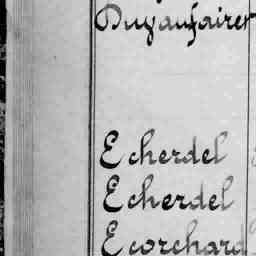 Duyaufairet
Echerdel
Echerdel
Ecorchard